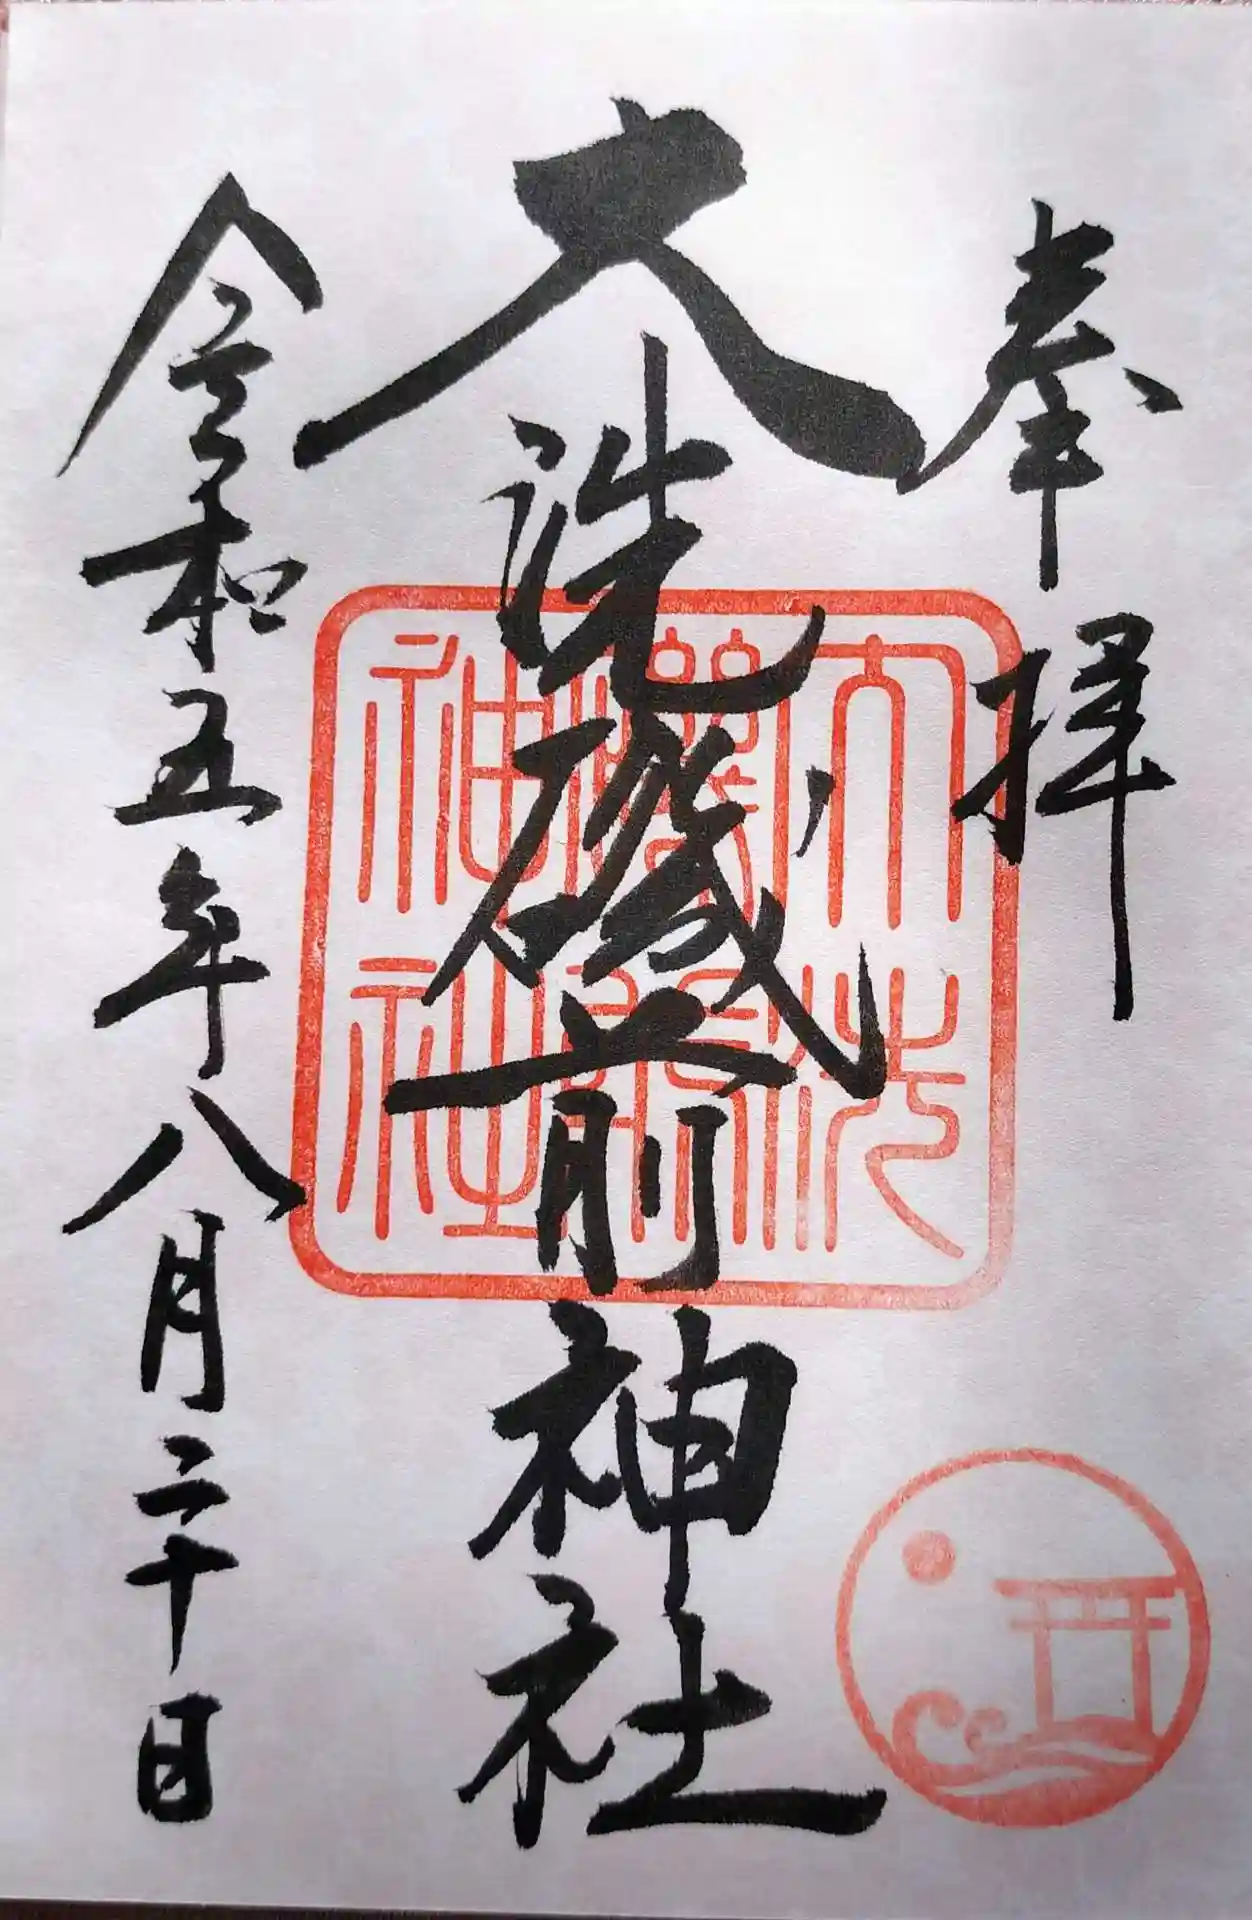 奉拝
大洗磯前神社
大洗磯前神社
令和五年八月二十日